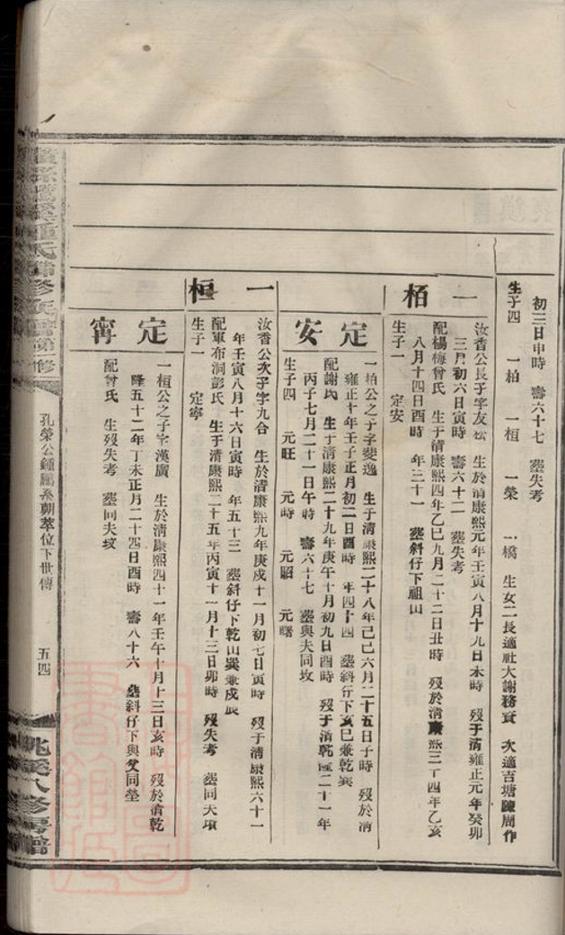 初三日申時 壽六十七 塟失考
生子四 一柏 一桓 一榮 一橋 生女二長適社大謝務賓 次適吉塘陳周作
一柏
汝香公長子字友松 生於清康熙元年壬寅八月十九日未時 歿于清雍正元年癸卯
三月初六日寅時 壽六十二 塟失考
配楊梅曾氏 生于清康熙四年乙巳九月二十二日丑時 歿於清康熙三十四年乙亥
八月十四日酉時 年三十一 塟斜仔下祖山
生子一 定安
定安
一柏公之子字斐逸 生于清康熙二十八年己巳六月二十五日子時 歿於清
雍正十年壬子正月初二日酉時 年四十四 塟斜仔下亥巳兼乾巽
配謝氏 生于清康熙二十九年庚午十月初九日酉時 歿于清乾隆二十一年
丙子七月二十一日午時 壽六十七 塟與夫同坟
生子四 元旺 元時 元昭 元曙
一桓
汝香公次子字九合 生於清康熙九年庚戌十一月初七日寅時 歿于清康熙六十一
年壬寅八月十六日寅時 年五十三 塟斜仔下乾山巽兼戌辰
配軍布洞彭氏 生于清康熙二十五年丙寅十一月十三日卯時 歿失考 塟同夫墳
生子一 定寧
定寗
一桓公之子字漢廣 生於清康熙四十一年壬午十月十三日亥時 歿於清乾
隆五十二年丁未正月二十四日酉時 壽八十六 塟斜仔下與父同塋
配曾氏 生歿失考 塟同夫坟
氏 修族譜 修
孔榮公鍾鳳系朝萃位下世傳 五四
八修房譜